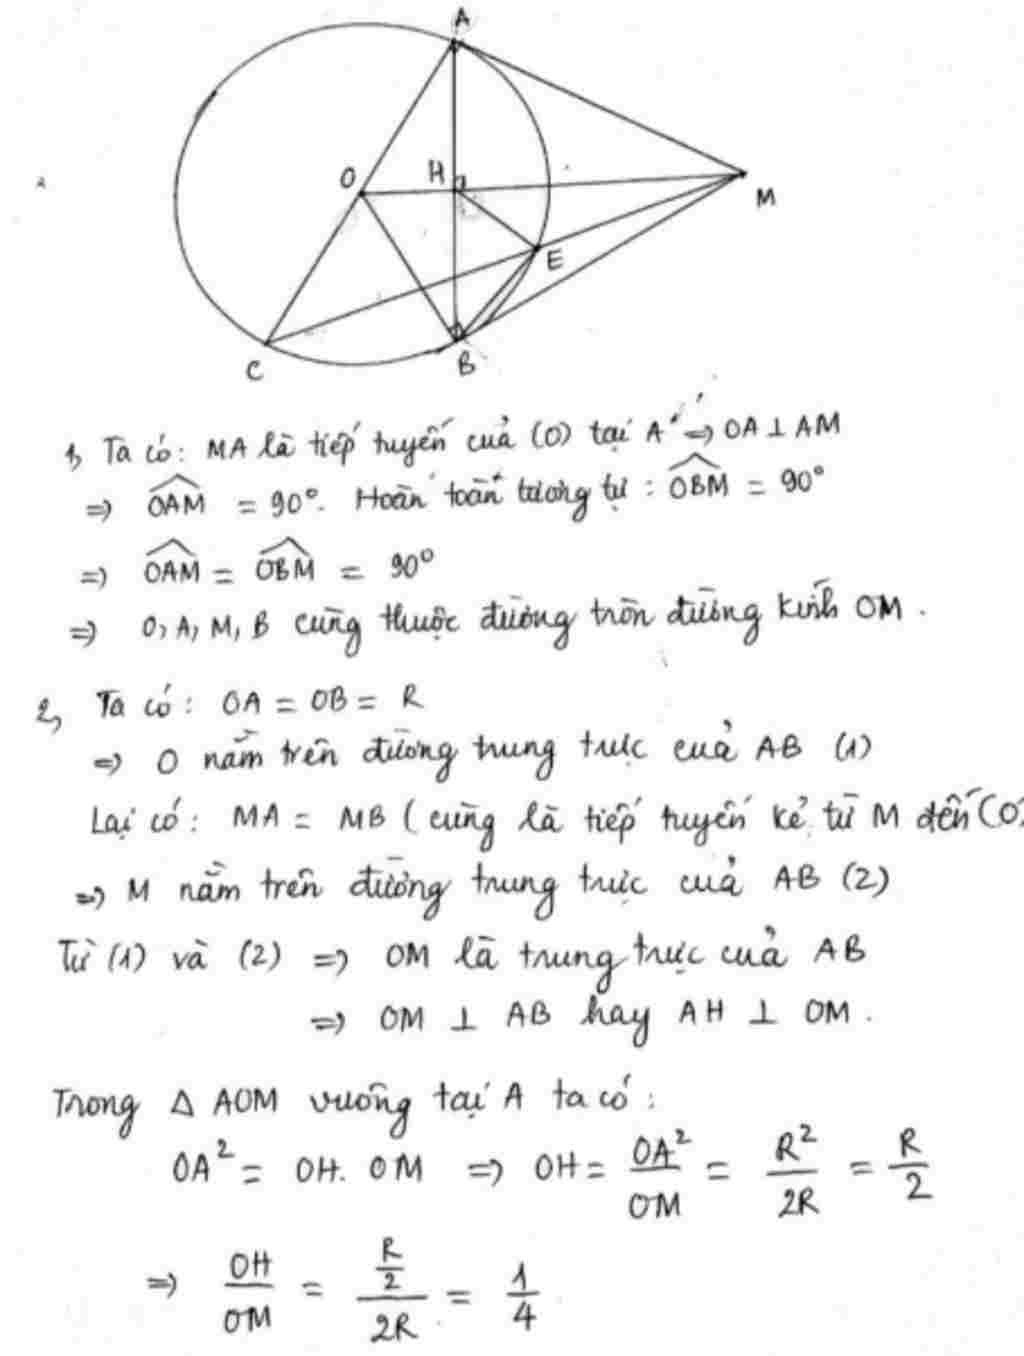 A
O
H
M
E
C
B
1, Ta có: MA là tiếp tuyến của (O) tại A => OA ⊥ AM
=> \widehat{OAM} = 90°. Hoàn toàn tương tự : \widehat{OBM} = 90°
=> \widehat{OAM} = \widehat{OBM} = 90°
=> O, A, M, B cùng thuộc đường tròn đường kính OM.
2, Ta có: OA = OB = R
=> O nằm trên đường trung trực của AB (1)
Lại có: MA = MB (cùng là tiếp tuyến kẻ từ M đến (O)
=> M nằm trên đường trung trực của AB (2)
Từ (1) và (2) => OM là trung trực của AB
=> OM ⊥ AB hay AH ⊥ OM.
Trong Δ AOM vuông tại A ta có:
OA² = OH. OM => OH = OA²/OM = R²/2R = R/2
=> OH/OM = (R/2)/2R = 1/4